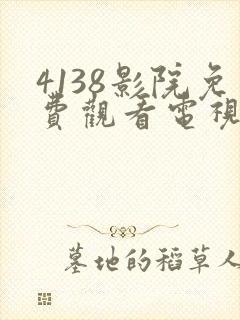 4138影院免
費觀看電視
墓地的稻草人